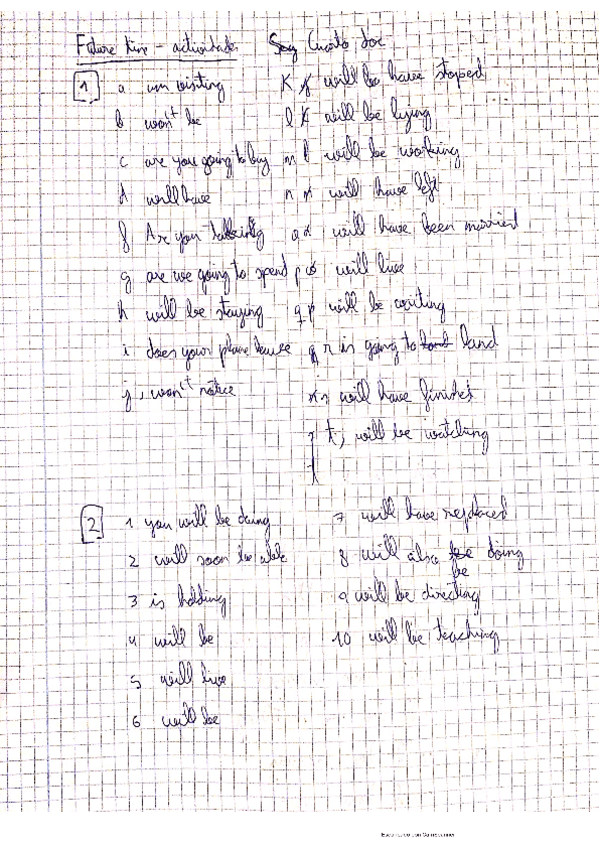 Future time - actividades
1
a am visiting
b won't be
c are you going to buy
d will have
f Are you
g are we going to spend
h will be staying
i does your plane leave
j, won't notice
k will be have stoped
l will be lying
m will be working
n will have left
o will have been married
p will live
q will be waiting
r is going to land
s will have finished
t, will be watching
2
1 you will be doing
2 will soon be able
3 is holding
4 will be
5 will live
6 will be
7 will have replaced
8 will also be doing
9 will be directing
10 will be teaching